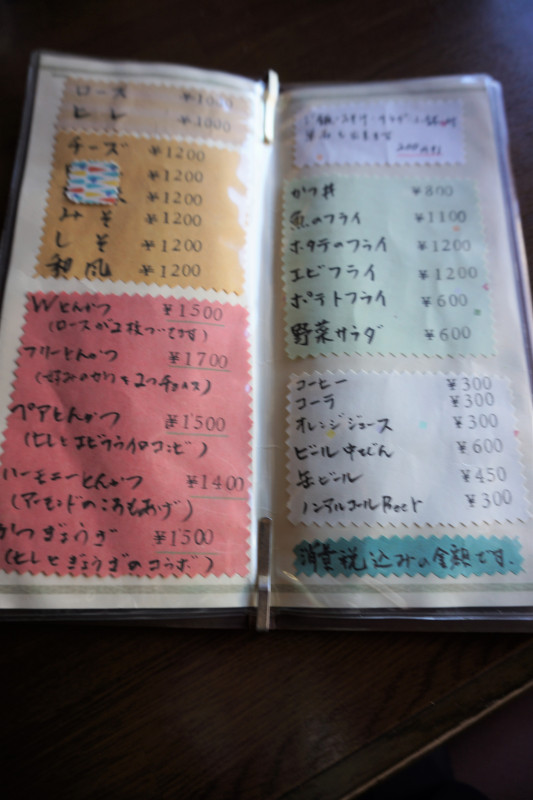 ロース ¥1000
ヒレ ¥1000
チーズ ¥1200
¥1200
¥1200
みそ ¥1200
しそ ¥1200
和風 ¥1200
Wとんかつ ¥1500
(ロースが2枚ついてます)
フリーとんかつ ¥1700
(好みのかつを2つチョイス)
ペアとんかつ ¥1500
(ヒレとエビフライのコンビ)
ハーモニーとんかつ ¥1400
(アーモンドのころもあげ)
かつぎょうざ ¥1500
(ヒレとぎょうざのコラボ)
かつ丼 ¥800
魚のフライ ¥1100
ホタテのフライ ¥1200
エビフライ ¥1200
ポテトフライ ¥600
野菜サラダ ¥600
コーヒー ¥300
コーラ ¥300
オレンジジュース ¥300
ビール中びん ¥600
缶ビール ¥450
ノンアルコールBeer ¥300
消費税込みの金額です.